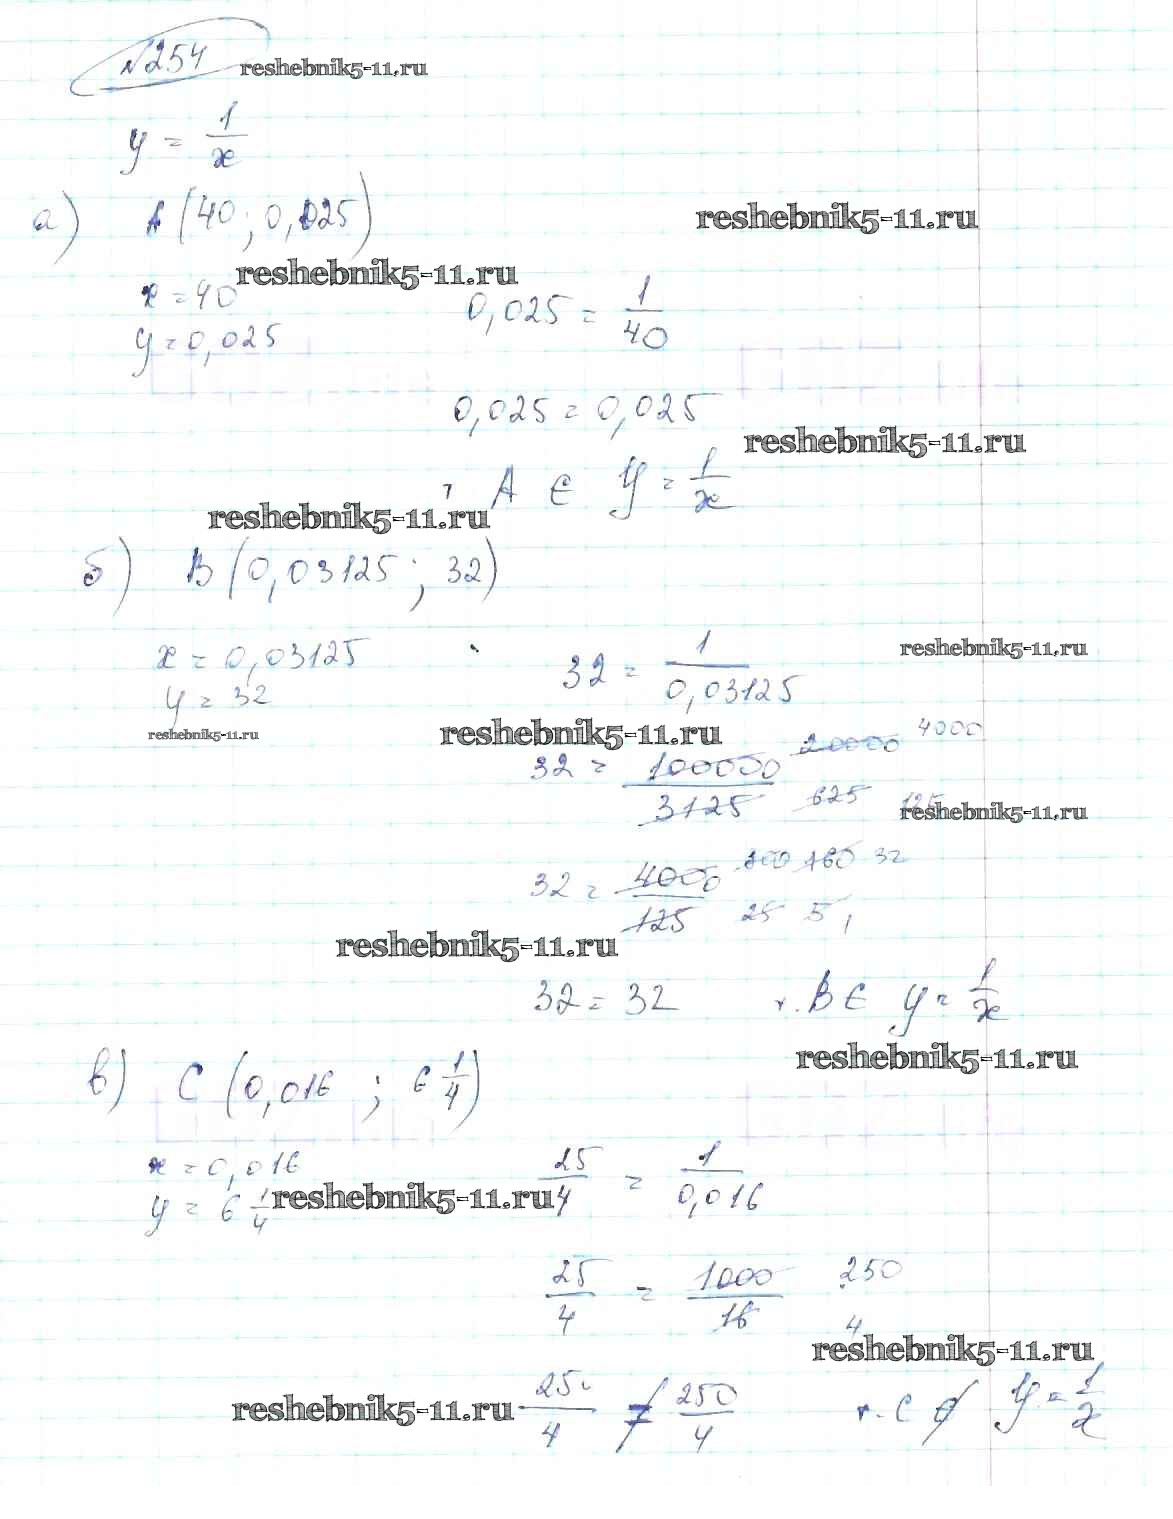 №254 reshebnik5-11.ru
y = 1/x
а) A (40; 0,025)
reshebnik5-11.ru
reshebnik5-11.ru
x = 40
y = 0,025
0,025 = 1/40
0,025 = 0,025
reshebnik5-11.ru
т A ∈ y = 1/x
reshebnik5-11.ru
б) B (0,03125; 32)
x = 0,03125
y = 32
32 = 1/0,03125
reshebnik5-11.ru
reshebnik5-11.ru
reshebnik5-11.ru
32 = 100000/3125 20000/625 4000/125
reshebnik5-11.ru
32 = 4000/125 800/25 160/5 32/1
reshebnik5-11.ru
32 = 32 т. B ∈ y = 1/x
reshebnik5-11.ru
в) C (0,016; 6 1/4)
x = 0,016
y = 6 1/4
reshebnik5-11.ru
25/4 = 1/0,016
25/4 = 1000/16 250/4
reshebnik5-11.ru
reshebnik5-11.ru
25/4 ≠ 250/4 т. C ∉ y = 1/x